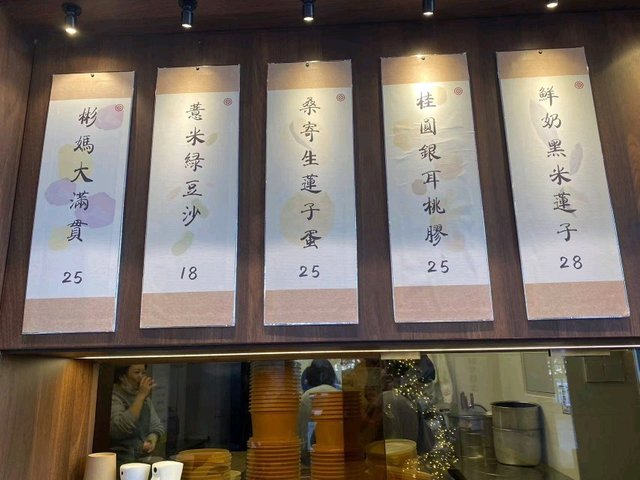 彬媽大滿貫
25
薏米綠豆沙
18
桑寄生蓮子蛋
25
桂圓銀耳桃膠
25
鮮奶黑米蓮子
28